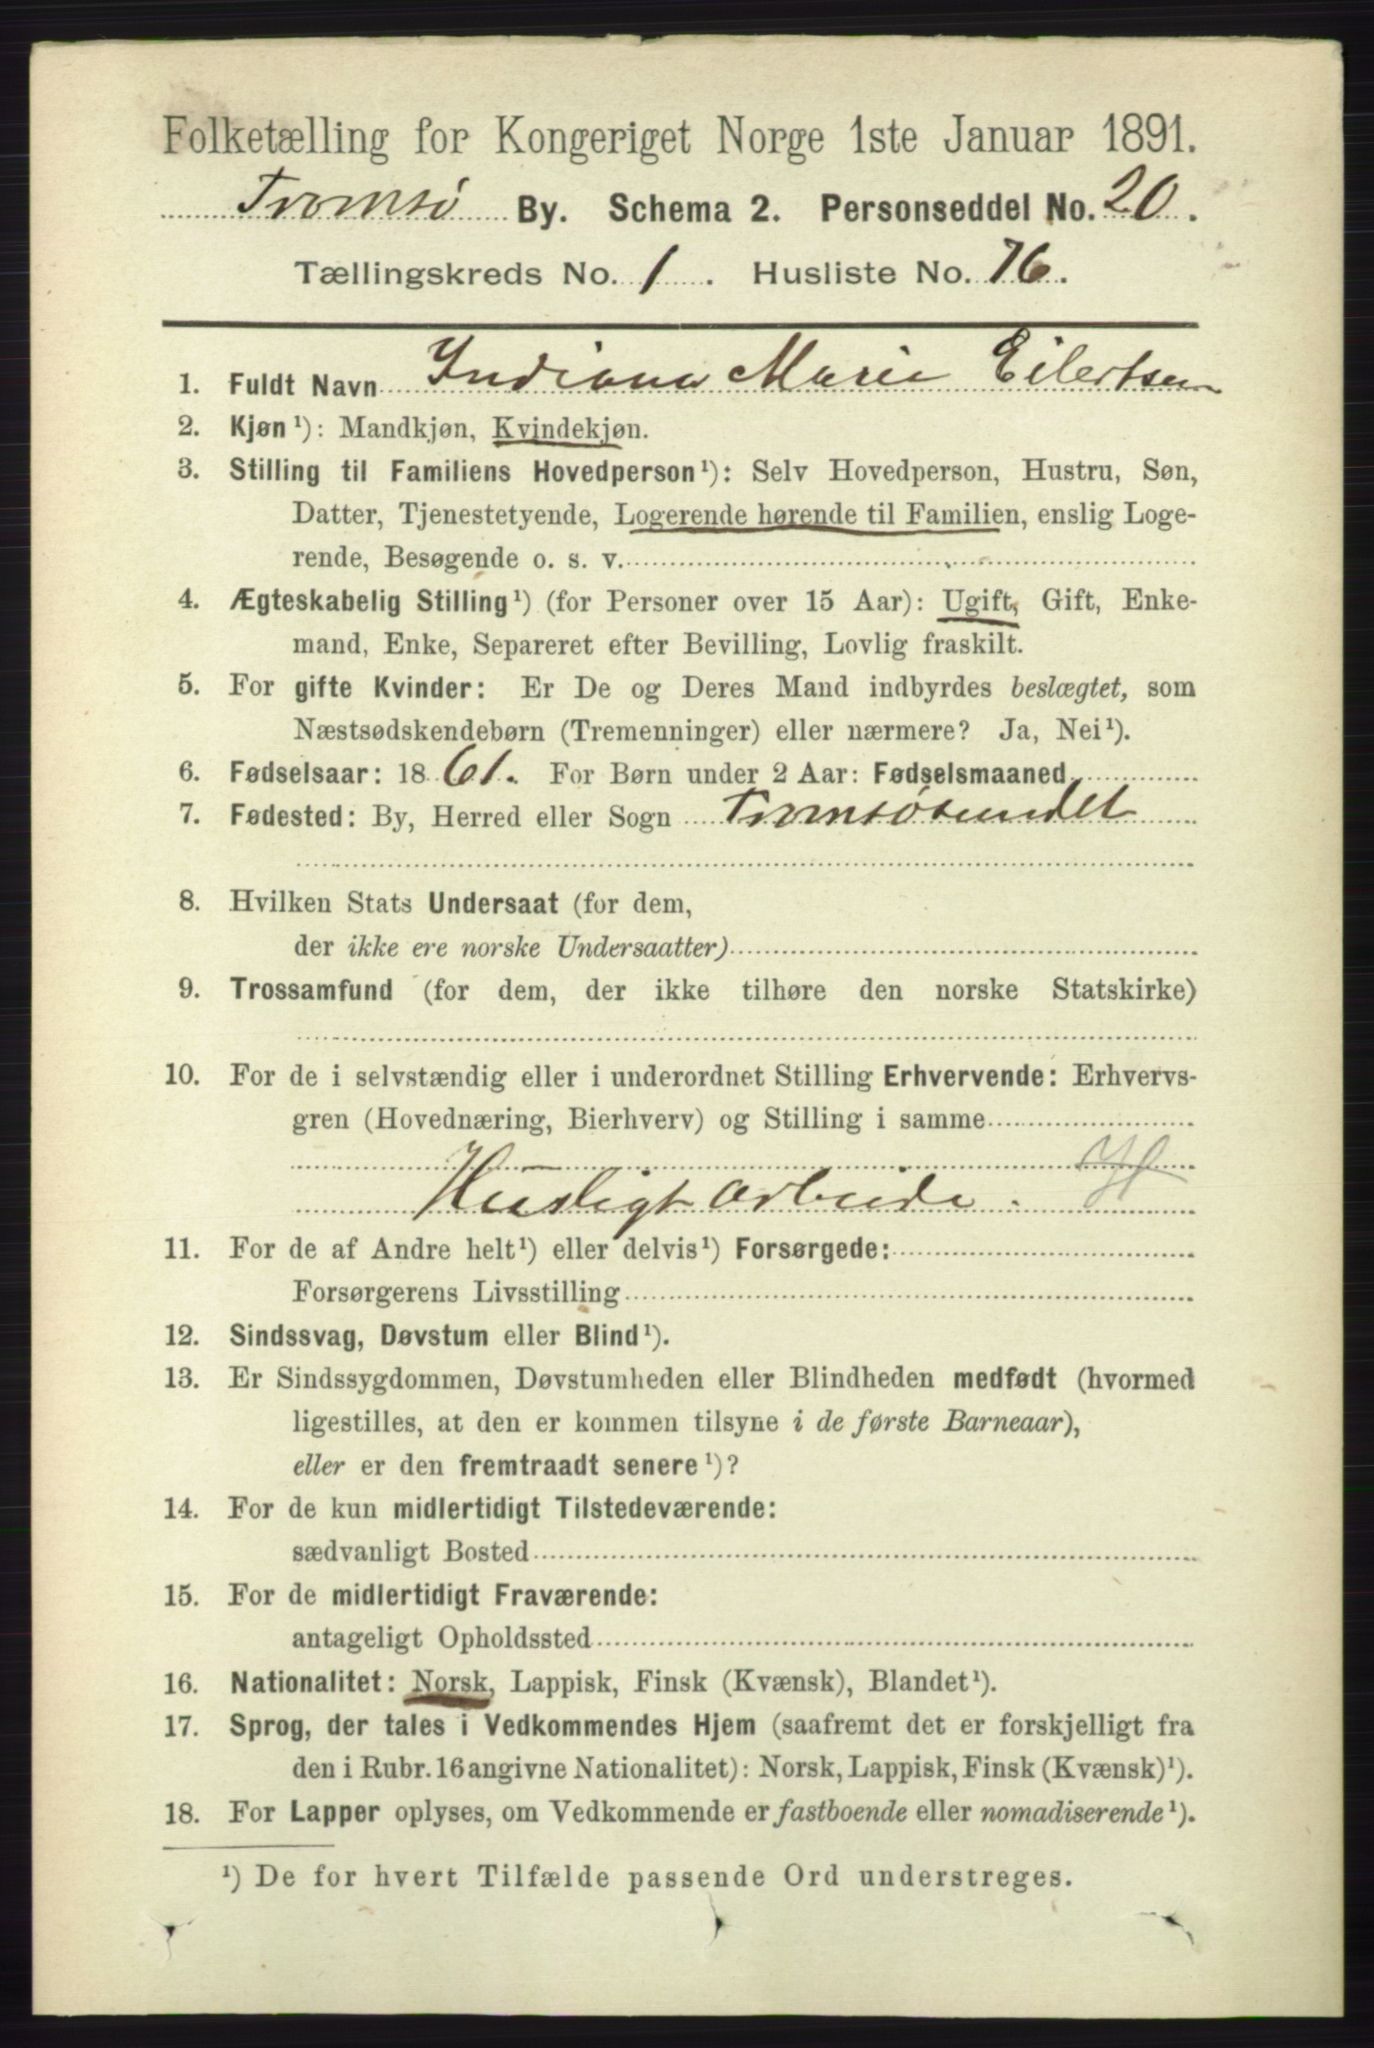 Folketælling for Kongeriget Norge 1ste Januar 1891.
Tromsø By. Schema 2. Personseddel No. 20.
Tællingskreds No. 1. Husliste No. 76.
1. Fuldt Navn Indiana Marie Eilertsen
2. Kjøn¹): Mandkjøn, Kvindekjøn.
3. Stilling til Familiens Hovedperson¹): Selv Hovedperson, Hustru, Søn,
Datter, Tjenestetyende, Logerende hørende til Familien, enslig Loge-
rende, Besøgende o. s. v.
4. Ægteskabelig Stilling¹) (for Personer over 15 Aar): Ugift, Gift, Enke-
mand, Enke, Separeret efter Bevilling, Lovlig fraskilt.
5. For gifte Kvinder: Er De og Deres Mand indbyrdes beslægtet, som
Næstsødskendebørn (Tremenninger) eller nærmere? Ja, Nei¹).
6. Fødselsaar: 1861. For Børn under 2 Aar: Fødselsmaaned
7. Fødested: By, Herred eller Sogn Tromsøsundet
8. Hvilken Stats Undersaat (for dem,
der ikke ere norske Undersaatter)
9. Trossamfund (for dem, der ikke tilhøre den norske Statskirke)
10. For de i selvstændig eller i underordnet Stilling Erhvervende: Erhvervs-
gren (Hovednæring, Bierhverv) og Stilling i samme
Husligt arbeide. H
11. For de af Andre helt¹) eller delvis¹) Forsørgede:
Forsørgerens Livsstilling
12. Sindssvag, Døvstum eller Blind¹).
13. Er Sindssygdommen, Døvstumheden eller Blindheden medfødt (hvormed
ligestilles, at den er kommen tilsyne i de første Barneaar),
eller er den fremtraadt senere¹)?
14. For de kun midlertidigt Tilstedeværende:
sædvanligt Bosted
15. For de midlertidigt Fraværende:
antageligt Opholdssted
16. Nationalitet: Norsk, Lappisk, Finsk (Kvænsk), Blandet¹).
17. Sprog, der tales i Vedkommendes Hjem (saafremt det er forskjelligt fra
den i Rubr. 16 angivne Nationalitet): Norsk, Lappisk, Finsk (Kvænsk)¹).
18. For Lapper oplyses, om Vedkommende er fastboende eller nomadiserende¹).
¹) De for hvert Tilfælde passende Ord understreges.